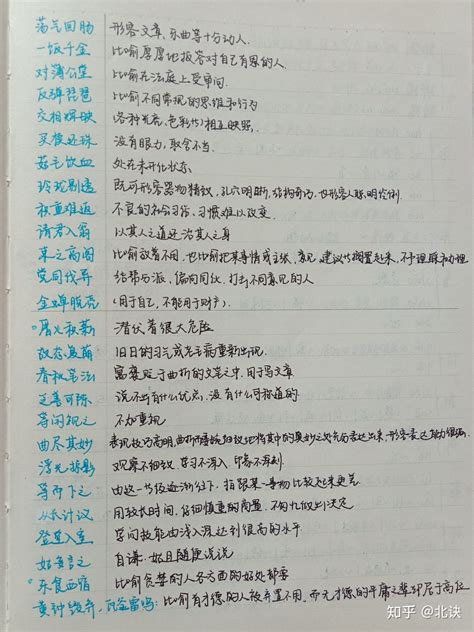 荡气回肠 形容文章、乐曲等十分动人.
一饭千金 比喻厚厚地报答对自己有恩的人.
对簿公堂 比喻在法庭上受审问.
反弹琵琶 比喻不同常规的思维和行为
交相辉映 (各种光亮、色彩等)相互映照.
买椟还珠 没有眼力,取舍不当.
茹毛饮血 处在未开化状态.
玲珑剔透 既可形容器物精致,孔穴明晰,结构奇巧,也形容人聪明伶俐.
积重难返 不良的社会习俗、习惯难以改变.
请君入瓮 以其人之道还治其人之身
束之高阁 比喻放着不用,也比喻把某事情或主张、意见、建议等搁置起来,不予理睬或办理
党同伐异 结帮与派,偏向同伙,打击不同意见的人
金蝉脱壳 (用于自己,不能用于财产)
厝火积薪 潜伏着很大危险
故态复萌 旧日的习气或老毛病重新出现.
春秋笔法 寓褒贬于曲折的文笔之中.用于写文章
乏善可陈 说不出有什么优点,没有什么可称道的
等闲视之 不加重视
曲尽其妙 表现技巧高明,曲折
浮光掠影 观察不细致,学习不深入,印象不深刻.
等而下之 由这一等级逐渐往下,指跟某一事物比较起来更差
从长计议 用较长时间,仔细慎重的商量,不匆忙做出决定
登堂入室 学问技能由浅入深达到很高的水平.
姑妄言之 自谦:姑且随便说说
东食西宿 比喻贪婪的人各方面的好处都要
黄钟毁弃,瓦釜雷鸣: 比喻有才德的人被弃置不用,而无才德的平庸之辈却居于高位
知乎 @北诀